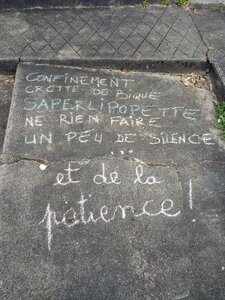 CONFINEMENT
CROTTE DE BIQUE
SAPERLIPOPETTE
NE RIEN FAIRE
UN PEU DE SILENCE
...
et de la
patience !